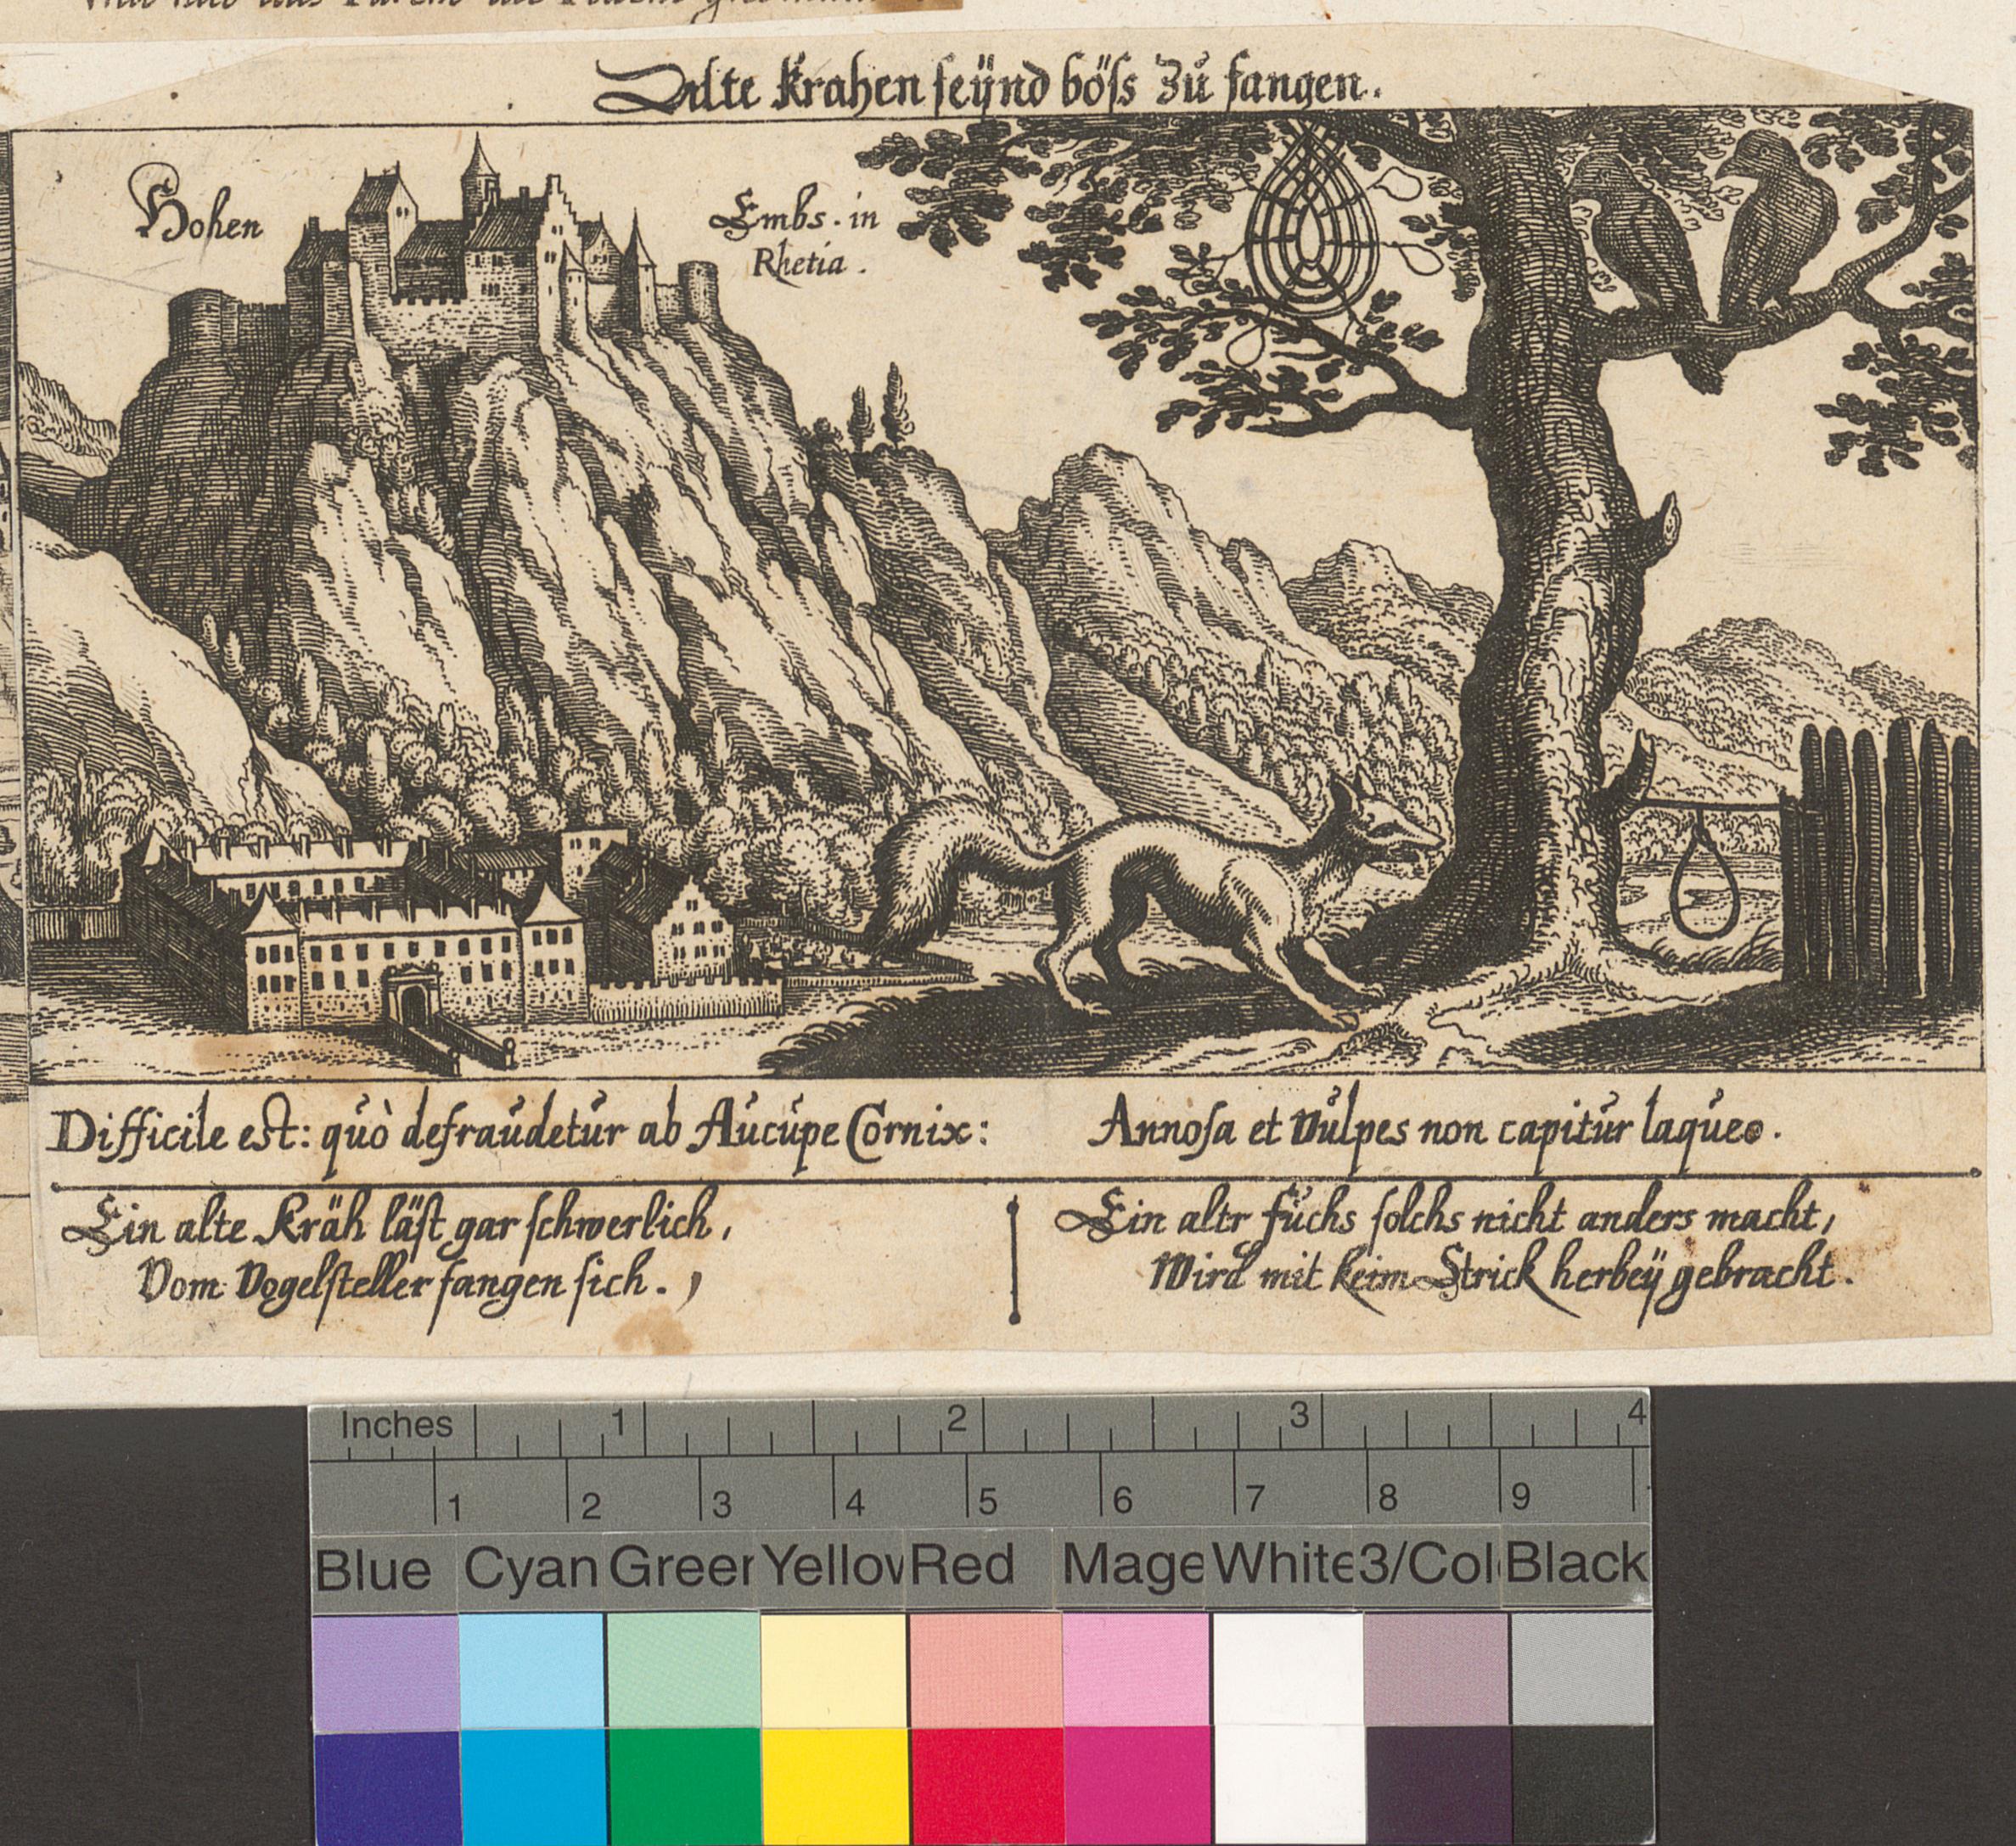 Alte Krahen seÿnd böss zu fangen.
Hohen Embs. in
Rhetia.
Difficile est: quò defraudetur ab Aucupe Cornix: Annosa et vulpes non capitur laqueo.
Ein alte Kräh läst gar schwerlich,
Vom Vogelsteller fangen sich.
Ein altr fuchs solchs nicht anders macht,
Wird mit keim Strick herbeÿ gebracht.
Inches 1 2 3 4
1 2 3 4 5 6 7 8 9
Blue Cyan Green Yellow Red Mage White 3/Col Black